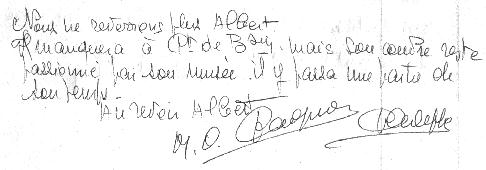 Nous ne reverrons plus Albert
Il manquera à CPT de Bay. mais, son centre reste
passionné par son musée. il y passa une partie de
son temps.
Au revoir Albert
M. O.